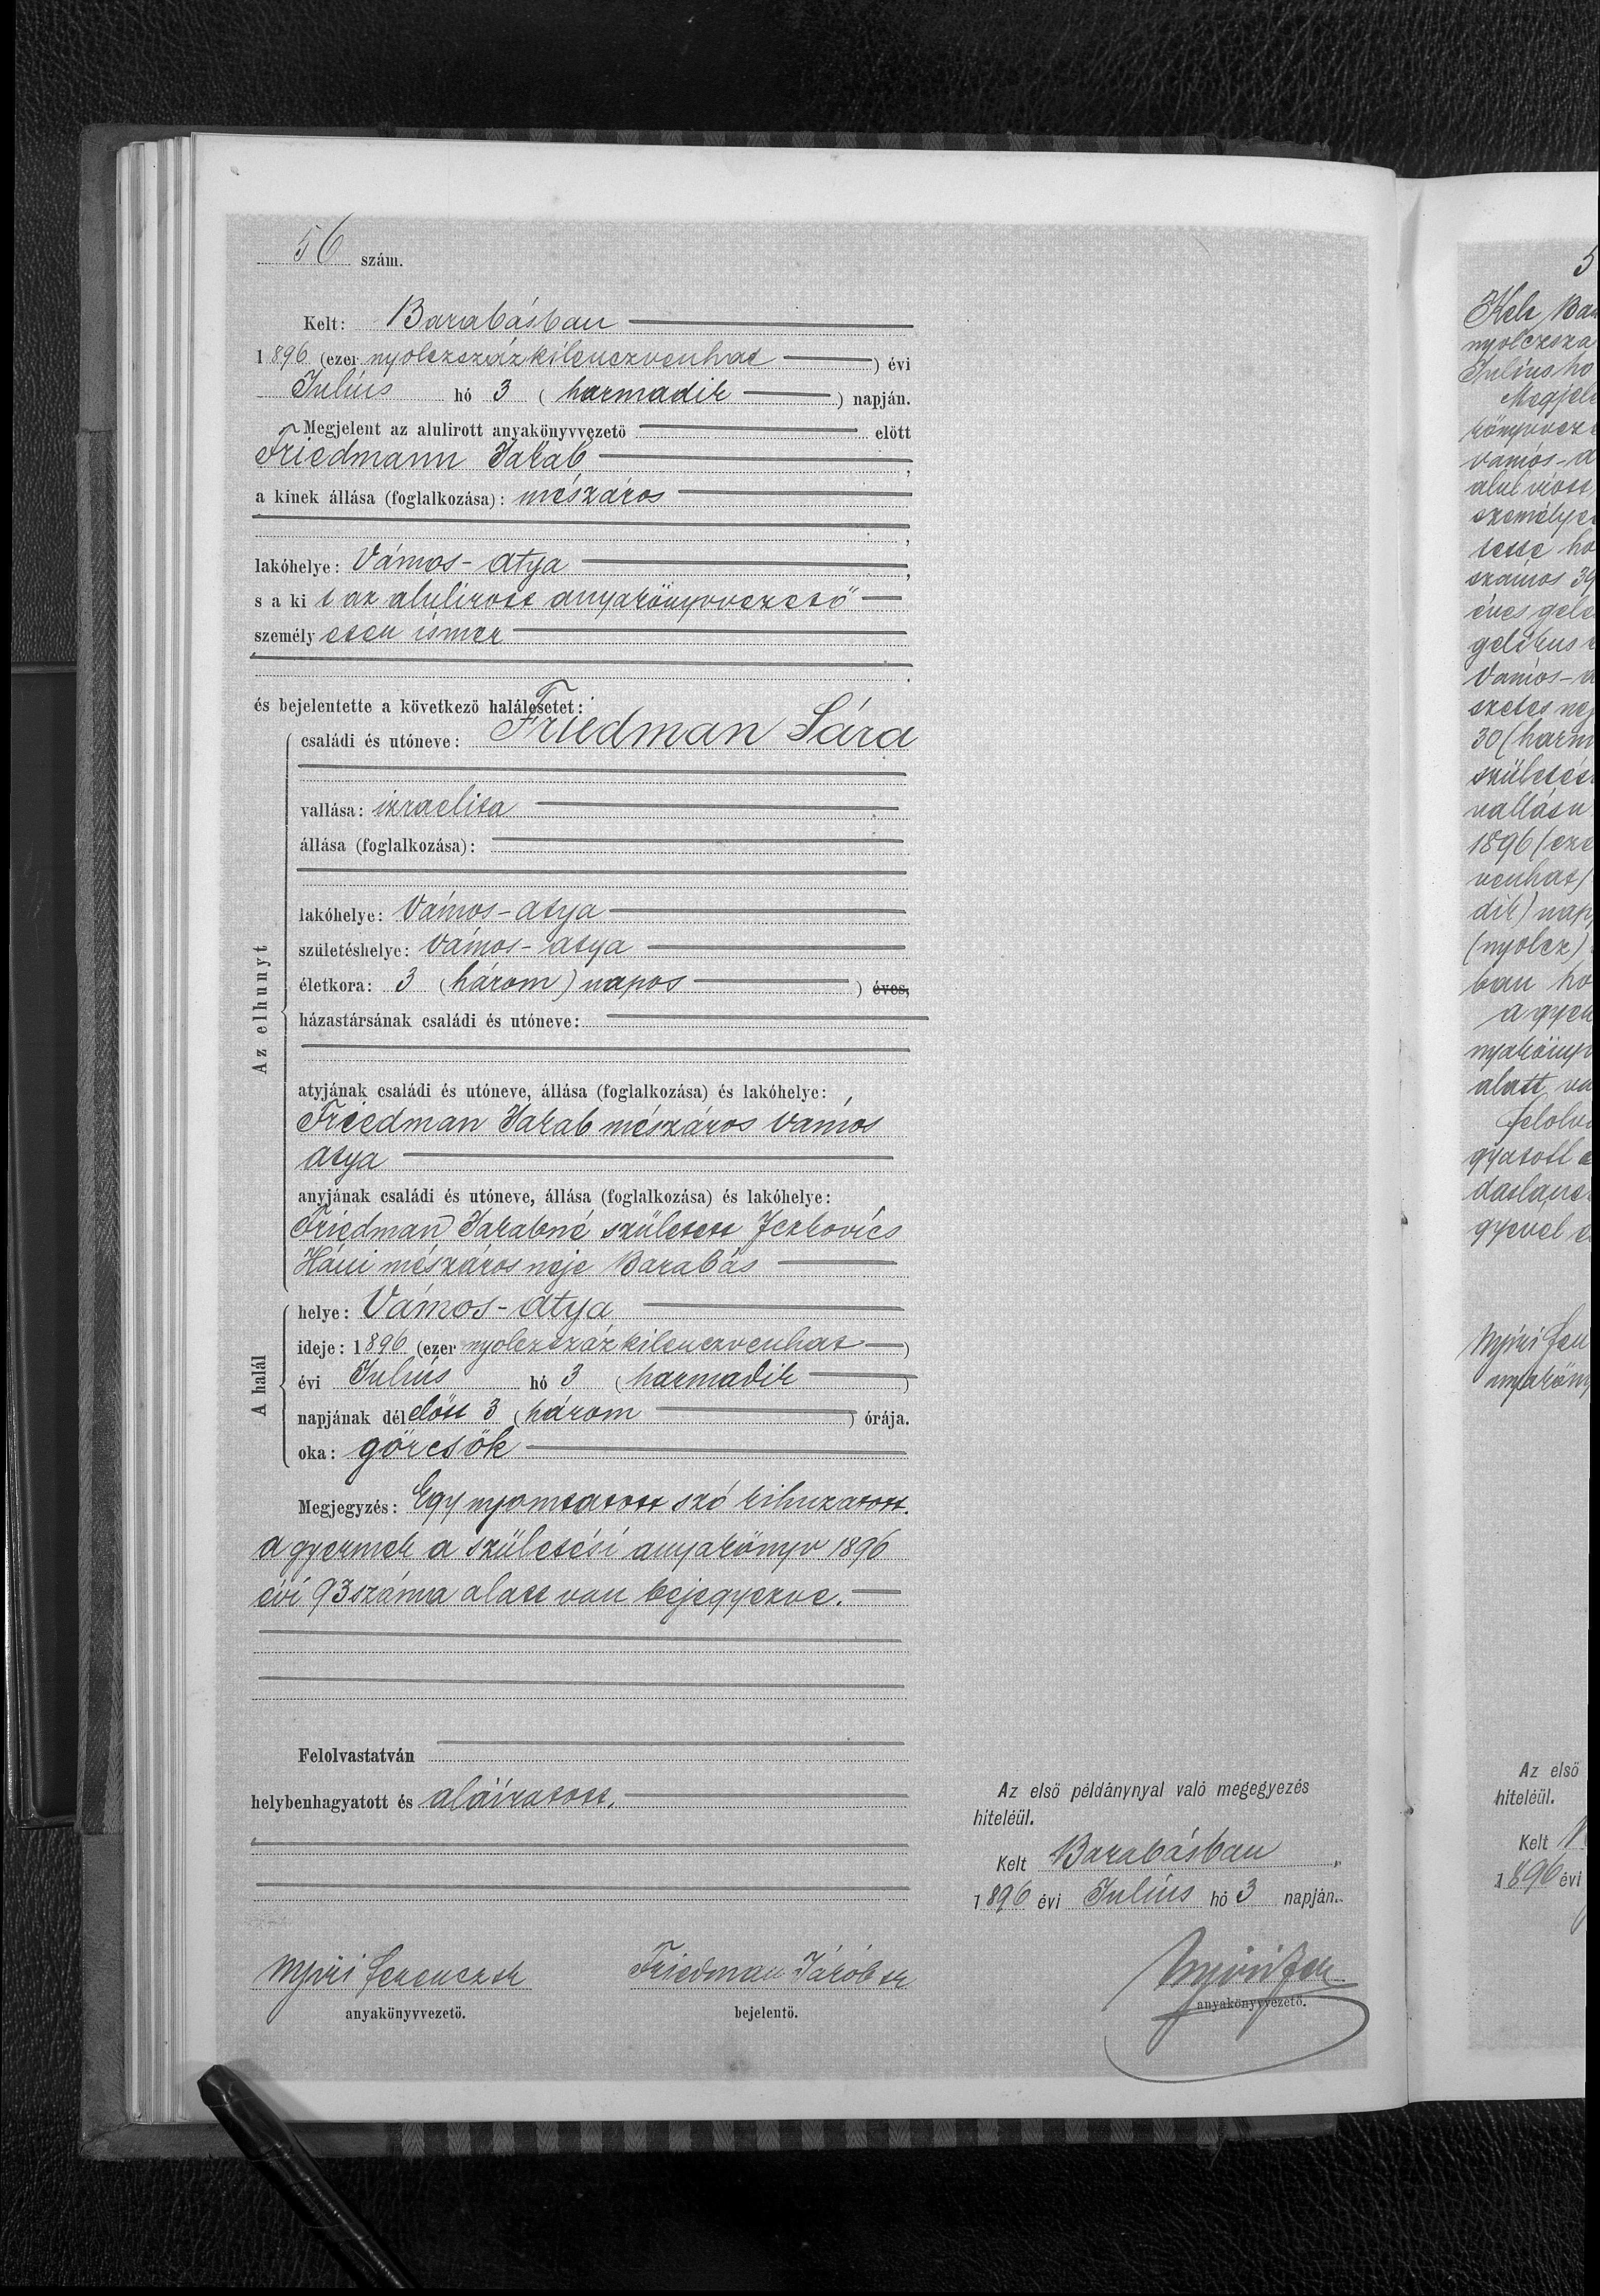 56 szám.
Kelt: Barabásban
1896 (ezer nyolczszázkilenczvenhat) évi
Július hó 3 (harmadik) napján.
Megjelent az alulirott anyakönyvvezető előtt
Friedmann Jakab,
a kinek állása (foglalkozása): mészáros
,
lakóhelye: Vámos-atya,
s a ki t az alulirott anyakönyvvezető
személy esen ismer
.
és bejelentette a következő halálesetet:
családi és utóneve: Friedman Sára
vallása: izraelita
állása (foglalkozása):
lakóhelye: Vámos-atya
születéshelye: Vámos-atya
életkora: 3 (három) napos ) éves,
házastársának családi és utóneve:
atyjának családi és utóneve, állása (foglalkozása) és lakóhelye:
Friedman Jakab mészáros Vámos
atya
anyjának családi és utóneve, állása (foglalkozása) és lakóhelye:
Friedman Jakabné született
Háni mészáros neje Barabás
Az elhunyt
helye: Vámos-atya
ideje: 1896 (ezer nyolczszázkilenczvenhat)
évi Július hó 3 (harmadik)
napjának délelőtt 3 (három) órája.
oka: görcsök
A halál
Megjegyzés: Egy nyomtatott szó kihuzatott.
a gyermek a születési anyakönyv 1896
évi 93 száma alatt van bejegyezve.
Felolvastatván
helybenhagyatott és aláiratott.
Nyiri Ferencz sk
anyakönyvvezető.
Friedman Jákób sk
bejelentő.
Az első példánynyal való megegyezés
hiteléül.
Kelt Barabásban,
1896 évi Július hó 3 napján.
Nyiri Fer
anyakönyvvezető.
5
Kelt Bar
nyolczszá
Július hó
Megjele
könyvveze
vámos-a
alul irott
személyes
tette ho
számos 39
éves
Vámos-a
30 (harm
születés
vallásu
1896 (eze
venhat)
dik) nap
(nyolcz)
ban ho
a gyer
nyakönyv
alatt va
Felolva
gyatott
gyevel
Nyiri Fer
anyaköny
Az első
hiteléül.
Kelt
1896 évi